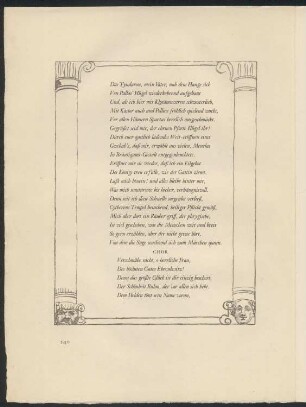 Das Tyndareos, mein Vater, nah dem Hange sich
Von Pallas' Hügel wiederkehrend aufgebaut
Und, als ich hier mit Klytämnestren schwesterlich,
Mit Kastor auch und Pollux fröhlich spielend wuchs,
Vor allen Häusern Spartas herrlich ausgeschmückt.
Gegrüßet seid mir, der ehrnen Pforte Flügel ihr!
Durch euer gastlich ladendes Weit-eröffnen einst
Geschah's, daß mir, erwählt aus vielen, Menelas
In Bräutigams-Gestalt entgegenleuchtete.
Eröffnet mir sie wieder, daß ich ein Eilgebot
Des Königs treu erfülle, wie der Gattin ziemt.
Laßt mich hinein! und alles bleibe hinter mir,
Was mich umstürmte bis hieher, verhängnisvoll.
Denn seit ich diese Schwelle sorgenlos verließ,
Cytherens Tempel besuchend, heiliger Pflicht gemäß,
Mich aber dort ein Räuber griff, der phrygische,
Ist viel geschehen, was die Menschen weit und breit
So gern erzählen, aber der nicht gerne hört,
Von dem die Sage wachsend sich zum Märchen spann.
CHOR
Verschmähe nicht, o herrliche Frau,
Des höchsten Gutes Ehrenbesitz!
Denn das größte Glück ist dir einzig beschert,
Der Schönheit Ruhm, der vor allen sich hebt.
Dem Helden tönt sein Name voran,